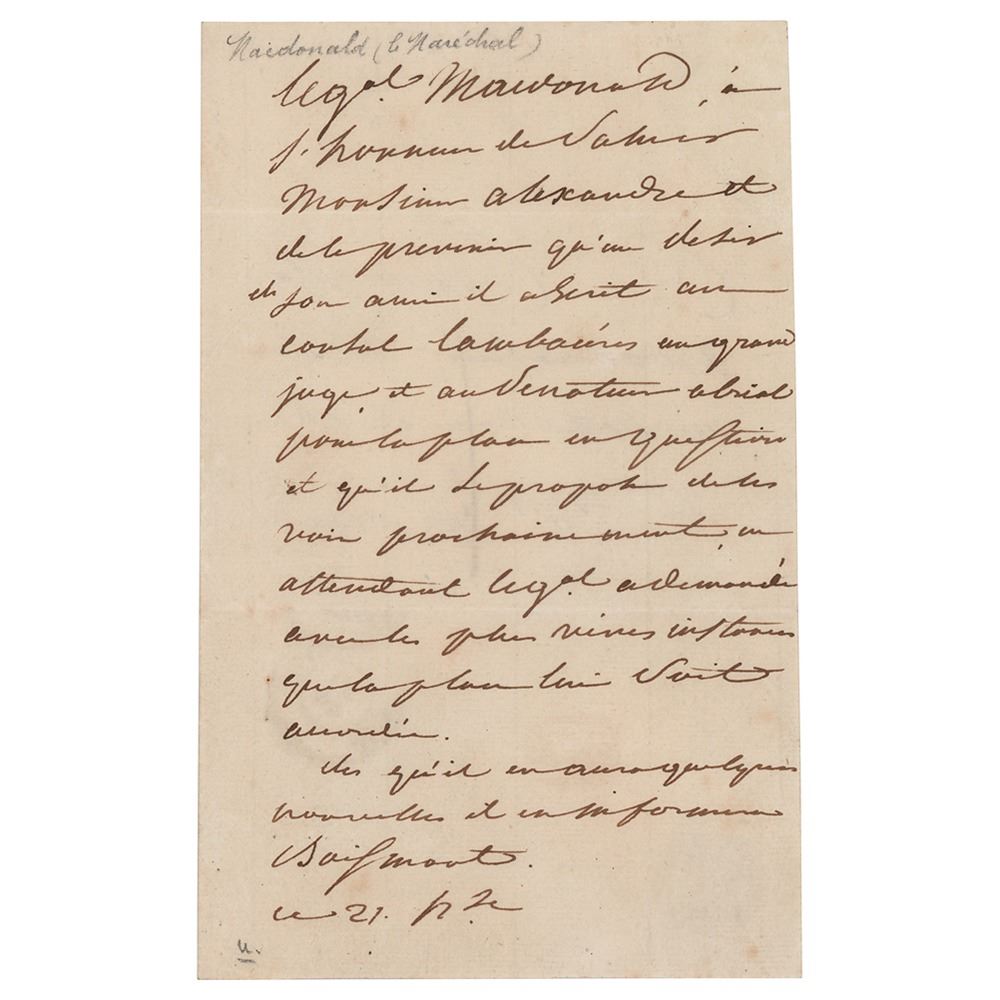 Macdonald (le Maréchal)
le gal. Macdonald, a
l'honneur de Saluer
Monsieur alexandre et
de le prevenir qu'au desir
de son ami il a Ecrit au
consul Cambacérés au grand
juge, et au Senateur abrial
pour la place en question
et qu'il se propose de les
voir prochainement, en
attendant le gal a demandé
avec les plus vives instances
que la place lui Soit
accordée.
des qu'il en aura quelques
nouvelles il en informera
Boismont.
ce 21.